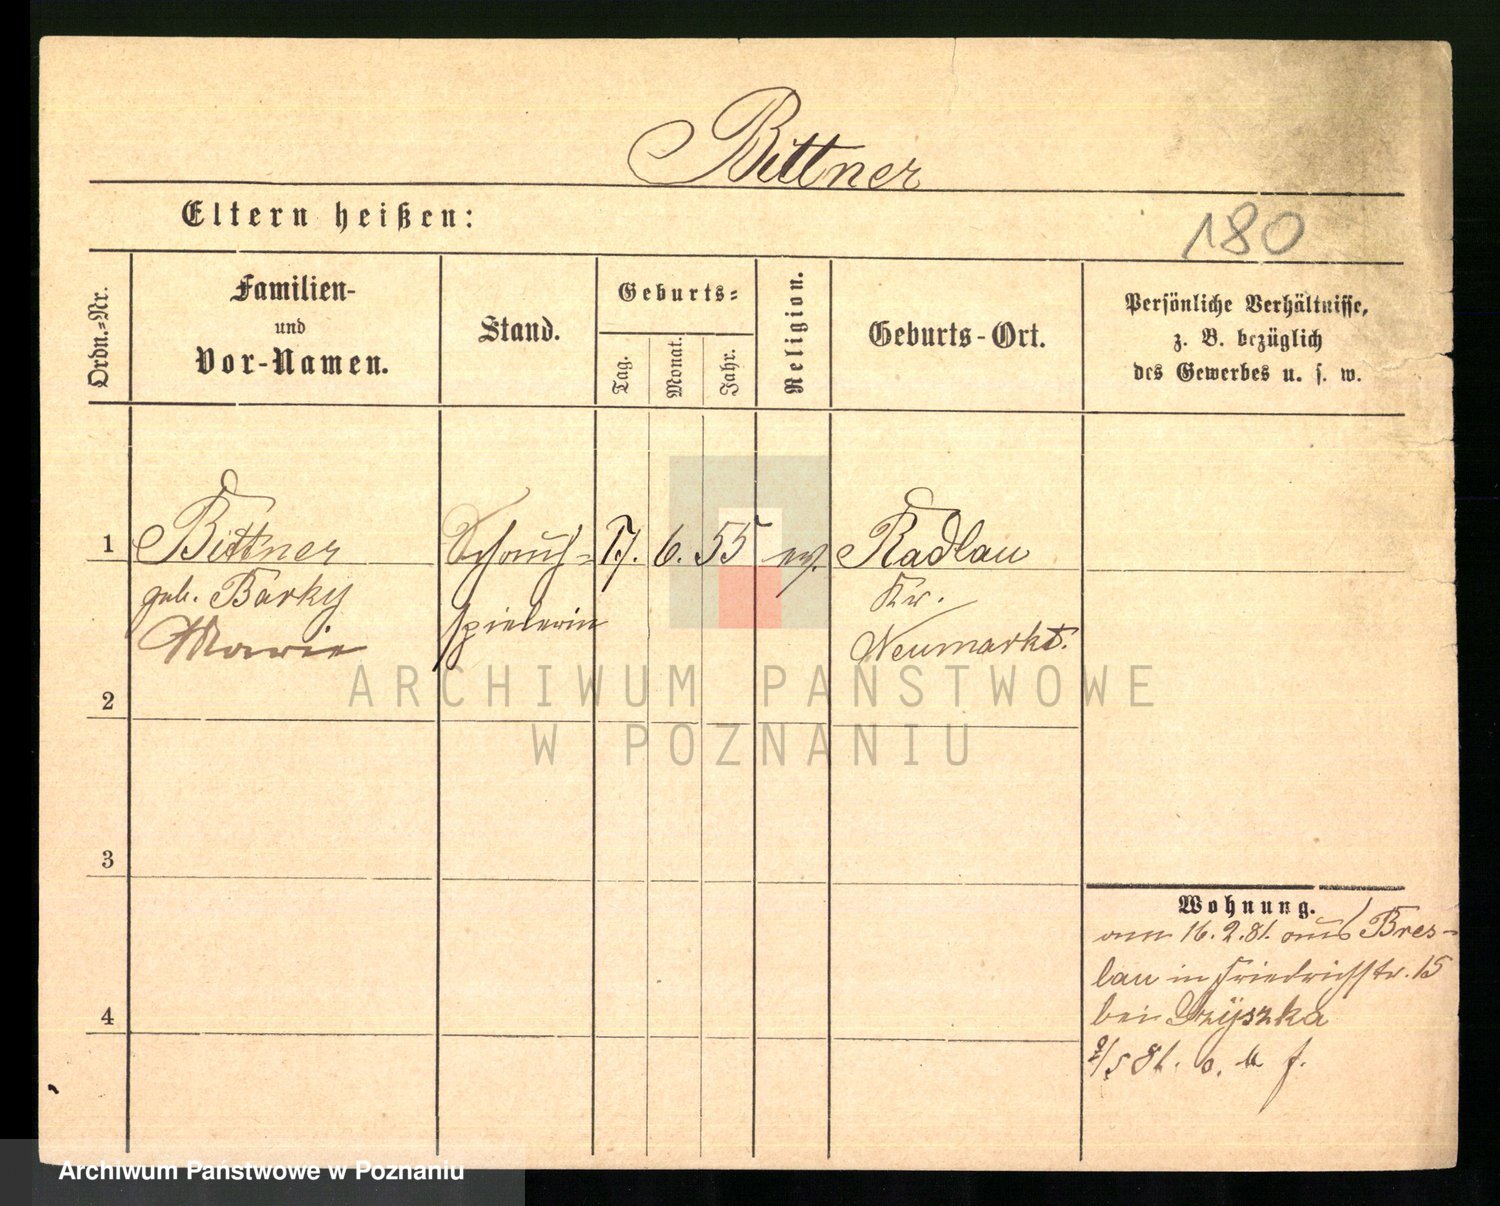 Bittner
Eltern heißen:
180
Ordn.-Nr.
Familien-
und
Vor-Namen.
Stand.
Geburts-
Tag.
Monat.
Jahr.
Religion.
Geburts-Ort.
Persönliche Verhältnisse,
z. B. bezüglich
des Gewerbes u. s. w.
1 Bittner Schau- 17. 6. 55 ev. Radlau
geb. Barky spielerin Kr.
Marie Neumarkt.
2
3
4
Wohnung.
am 16.2.81. aus Bres-
lau in Friedrichstr. 15
bei
81.
ARCHIWUM PAŃSTWOWE
W POZNANIU
Archiwum Państwowe w Poznaniu